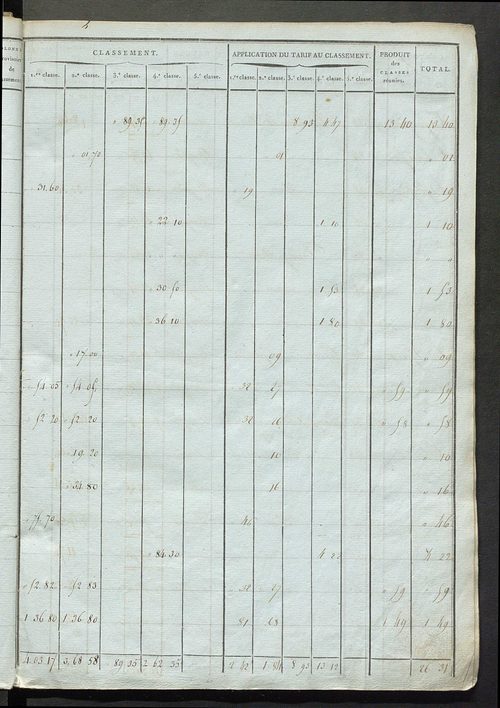 CLASSEMENT. APPLICATION DU TARIF AU CLASSEMENT. PRODUIT des CLASSES réunies. TOTAL.
1.re classe. 2.e classe. 3.e classe. 4.e classe. 5.e classe. 1.re classe. 2.e classe. 3.e classe. 4.e classe. 5.e classe.
" 89 35 " 89 35 8 93 4 47 13 40 13 40
" 01 70 01 " 01
31 60 " 19 " 19
" 22 10 1 10 1 10
" "
" 30 50 1 53 1 53
" 36 10 1 80 1 80
" 17 00 09 " 09
" 54 05 " 54 05 32 27 " 59 " 59
" 52 20 " 52 20 32 26 " 58 " 58
19 20 10 " 10
" 31 80 16 " 16
" 46
" 84 30 4 22 4 22
" 52 82 52 83 " 32 " 27 " 59 " 59
1 36 80 1 36 80 " 81 " 68 1 49 1 49
4 05 17 3 68 58 " 89 35 2 62 35 8 93 13 12 26 31